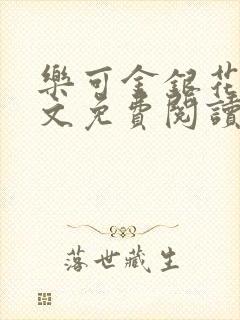 樂可金銀花
文免費閱讀
落世藏生